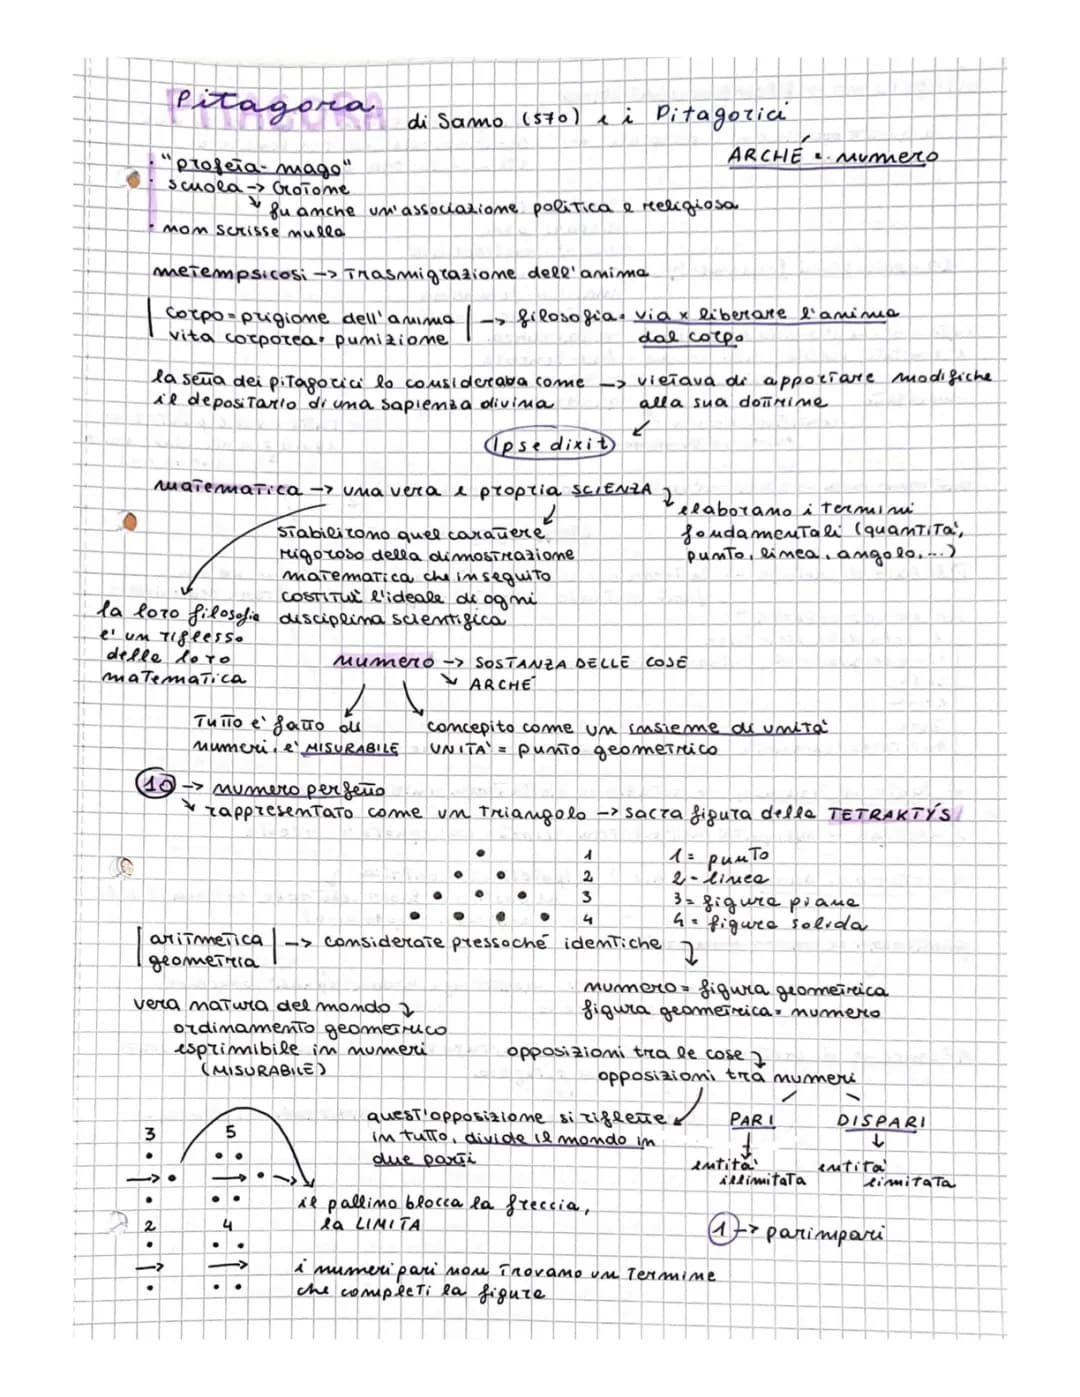 Pitagora di Samo (570) e i Pitagorici
ARCHÉ = numero
"profeta-mago"
scuola -> Crotone
fu anche un'associazione politica e religiosa
non scrisse nulla
metempsicosi -> trasmigrazione dell'anima
corpo = prigione dell'anima -> filosofia = via x liberare l'anima
vita corporea = punizione dal corpo
la setta dei pitagorici lo considerava come -> vietava di apportare modifiche
il depositario di una sapienza divina alla sua dottrina
Ipse dixit
matematica -> una vera e propria SCIENZA
elaborano i termini
fondamentali (quantità,
punto, linea, angolo, ...)
stabilirono quel carattere
rigoroso della dimostrazione
matematica che in seguito
costituì l'ideale di ogni
disciplina scientifica
la loro filosofia
e' un riflesso
della loro
matematica
numero -> SOSTANZA DELLE COSE
ARCHÉ
Tutto e' fatto di
numeri, e' MISURABILE
concepito come un insieme di unità
UNITA' = punto geometrico
10 -> numero perfetto
rappresentato come un triangolo -> sacra figura della TETRAKTÝS
1
2
3
4
1 = punto
2 = linea
3 = figura piana
4 = figura solida
aritmetica -> considerate pressoché identiche
geometria
numero = figura geometrica
figura geometrica = numero
vera natura del mondo
ordinamento geometrico
esprimibile in numeri
(MISURABILE)
opposizioni tra le cose
opposizioni tra numeri
quest'opposizione si riflette
in tutto, divide il mondo in
due parti
PARI
DISPARI
entità
illimitata
entità
limitata
3
5
il pallino blocca la freccia,
la LIMITA
1 -> parimpari
2
4
i numeri pari non trovano un termine
che completi la figura